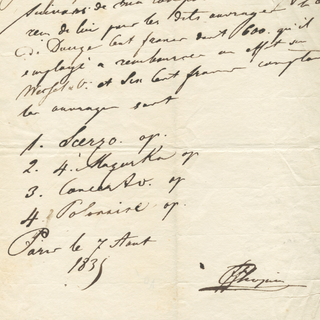 suivans de
reçu de lui pour les dits ouvrages
de Douze Cent francs dont 600 qu'il
employé a rembourser un effet sur
et Six Cent francs comptan
les ouvrages sont
1. Scerzo. op.
2. 4. Mazurka op
3. Concerto. op
4 Polonaise op.
Paris le 7 Aout
1835
FChopin